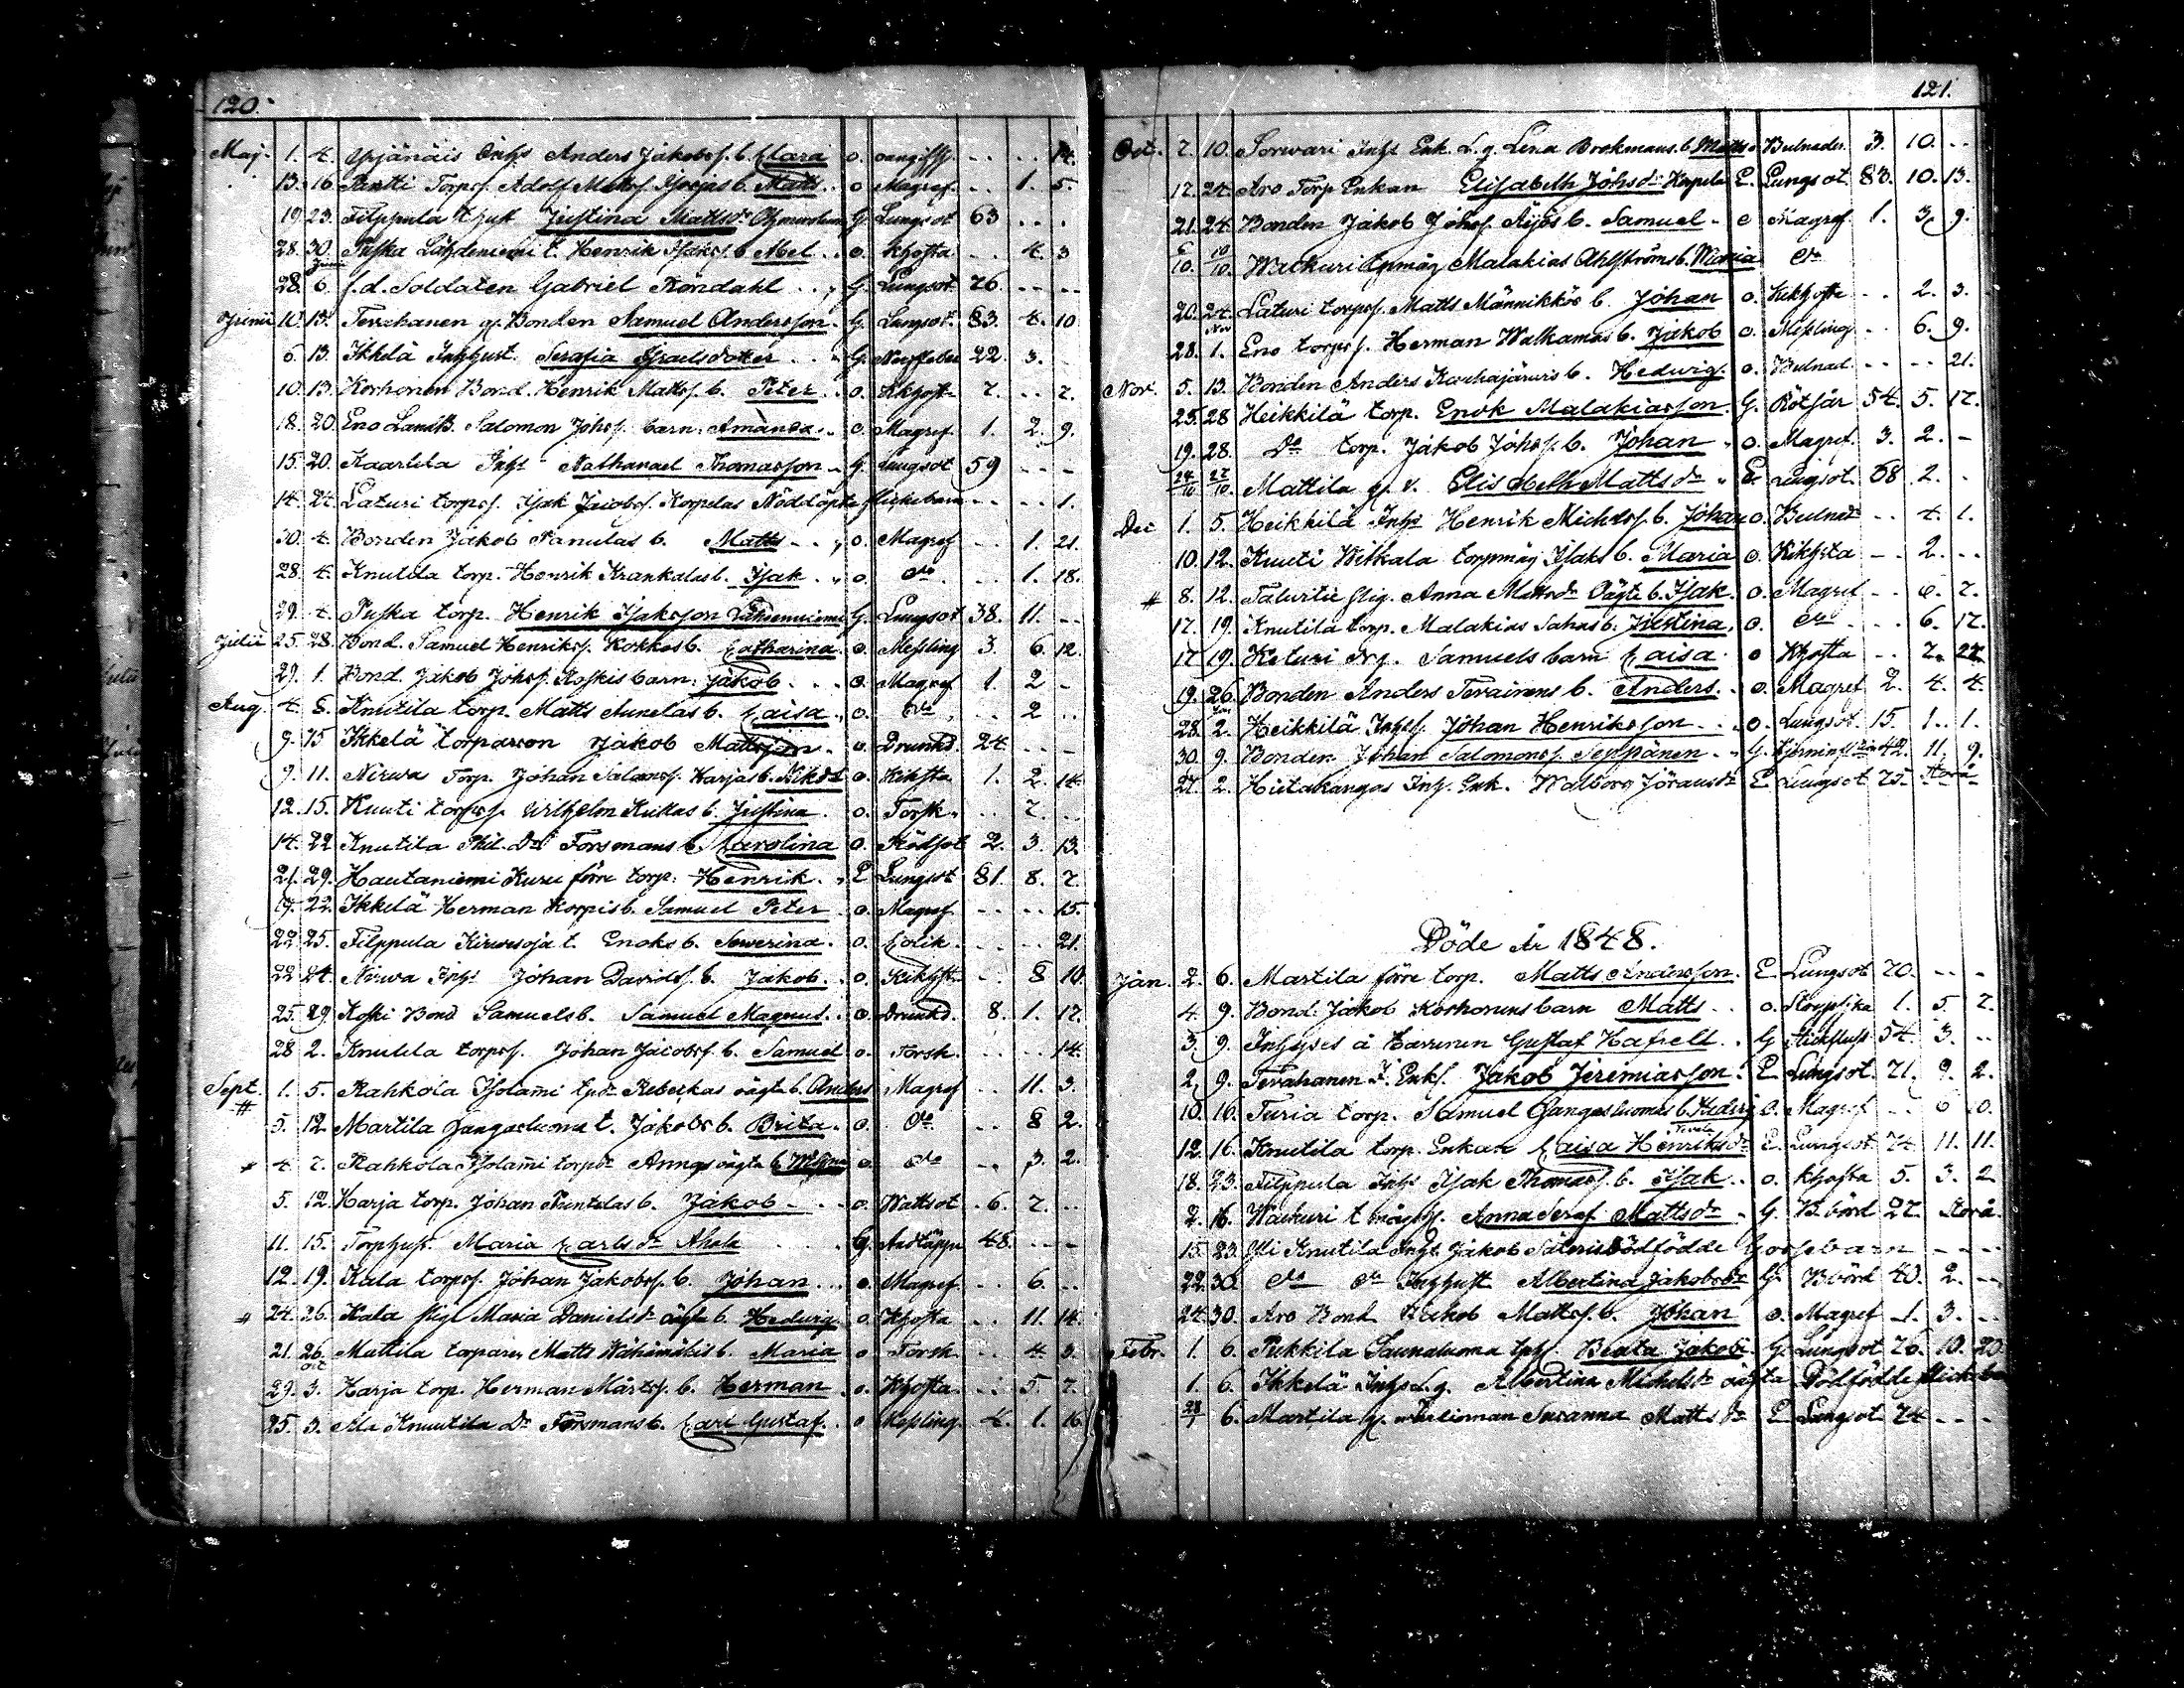 120.
Maj. 1. 4. Yrjänäis Inhs Anders Jakobsf. b. Clara o. oangifv. - - 14.
13. 16. Pentti Torpsf. Adolf Mattsf. b. Matts o Magref. - 1. 5.
19. 23. Filppula Justina Mattsdr G. Lungsot 63 - -
28. 30. Puska Lähdeniemi t. Henrik Isaksf. b. Abel o. Khosta - 4. 3
28. 6. f.d. Soldaten Gabriel Röndahl G. Lungsot 76 - -
Junii 10. 13. Tervahanen g. Bonden Samuel Andersson G. Lungsot. 83. 4. 10
6. 13. Ikkelä Inhyst. Serafia Israelsdotter G. Nerffeber 22. 3. -
10. 13. Korhonen Bond. Henrik Mattsf. b. Peter o. Khosta 7. - 7.
18. 20. Eno Landb. Salomon Johsf. barn Amanda o. Magref. 1. 2. 9.
15. 20. Kaartila Inhs Nathanael Thomasson G. Lungsot 59 - -
14. 24. Laturi torpsf. Isak Jacobsf. Korpelas Nöddöpta flickebarn - - 1.
30. 4. Bonden Jakob Panulas b. Matts o. Magref - 1. 21.
28. 4. Knutila torp. Henrik Krankalas b. Isak o. do - 1. 18.
29. 4. Puska torp. Henrik Isaksson Lähdeniemi G. Lungsot 38. 11. -
Julii 25. 28. Bond. Samuel Henriksf. Kokkos b. Catharina o. Messling 3. 6. 12.
29. 1. Bond. Jakob Johsf. Koskis barn Jakob o. Magref 1. 2 -
Aug. 4. 8. Knutila torp. Matts b. Caisa o. do - 2 -
9. 15 Ikkelä torparson Jakob Mattsson o. Drunkd. 24 - -
9. 11. Nirwa Torp. Johan Salomsf. Harjas b. o. Kikhsta 1. 2. 14.
12. 15. Knuti torpsf. Wilhelm b. Justina o. Torsk - 7. -
14. 22 Knutila Phil. Dr Forsmans b. Carolina o. Rödsot 2. 3. 13.
21. 29. Hautaniemi Kuru förre torp. Henrik E Lungsot 81. 8. 7.
17. 22. Ikkelä Herman Korpis b. Samuel Peter o. Magref - - 15.
22. 25. Filppula Kirvesoja t. Enoks b. Sewerina o. Colik - - 21.
22 24. Nirwa Inhs Johan Davidsf. b. Jakob o. Kikhst. - 8 10
25. 29. Koski Bond Samuels b. Samuel Magnus o. Drunkd. 8. 1. 17.
28 2. Knutila torpsf. Johan Jacobsf. b. Samuel o. Torsk. - - 14.
Sept. 1. 5. Rahkola Isolami Rebeckas oägta b. Anders Magref - 11. 3.
# 5. 12. Martila Jangasluoma t. Jakobs b. Brita o. do - 8 2.
# 4. 7. Rahkola Isolami torpdr Annas oägta b. o. do - 3. 2.
5. 12. Harja torp. Johan b. Jakob o. Wattsot 6. 7. -
11. 15. Torphust. Maria Carlsdr Ahola G. Andtäppa 48. - -
12. 19. Kala torpsf. Johan Jakobsf. b. Johan o. Magref - 6. -
# 24. 26. Kala Pigl Maria Danielsdr oägta b. Hedwig o. Khosta - 11. 14.
21. 26. Mattila torparen Matts Wähämäkis b. Maria o Torsk. - 4. 3.
29. 3. Harja torp. Herman Mårtsf. b. Herman o. Khosta - 5. 7.
25. 3. Ala Knuutila Dr Forsmans b. Carl Gustaf o Messling. 4. 1. 16
121.
Oct. 7. 10. Sorwari Inhs Enk. L.g. Lena Brokmans b. Matts o Bulnader 3. 10. -
17. 24. Aro Torp Enkan Elisabeth Johsdr Korpela E. Lungsot 83. 10. 13.
21. 24. Bonden Jakob Johsf. Äijös b. Samuel o Magref. 1. 3. 9.
6/10. 10/10. Warkuri Malakias Ahlströms b. Maria do
20. 24. Laturi torpsf. Matts Männikkös b. Johan o. Kikhosta - 2. 3.
28. Nov 1. Eno torpsf. Herman Walkamas b. Jakob o. Messling - 6. 9.
Nov. 5. 13. Bonden Anders b. Hedwig o. Bulnad. - - 21.
25. 28 Heikkilä torp. Enok Malakiasson G. Rötsår 54. 5. 17.
19. 28. Do torp. Jakob Johsf. b. Johan o. Magref. 3. 2. -
24/10 27/10. Mattila Elisabeth Mattsdr E. Lungsot. 68 2. -
Dec 1. 5. Heikkilä Inhs Henrik Michelsf. b. Johan o. Bulnad - 4. 1.
10. 12. Knuti Witkala torpmåg Isaks b. Maria o. Kikhsta - 2. -
# 8. 12. Pig. Anna Mattsdr oägta b. Isak o. Magref - 6. 7.
17. 19. Knutila torp. Malakias Sahas b. Justina o. do - 6. 17.
17 19. Koturi Samuels barn Caisa o Khosta - 7. 22.
19. 26. Bonden Anders Tervainens b. Anders o. Magref 2. 4. 4.
28. Jan 2. Heikkilä Inhsf. Johan Henriksson o. Lungsot 15. 1. 1.
30. 9. Bonden Johan Salomonsf. Seppänen G. 42. 11. 9.
27. 2. Hietakangas Inh. Enk. Walborg E Lungsot 75. Storå

Döde År 1848.
Jan. 2. 6. Martila förre torp. Matts Andersson E Lungsot 70. - -
4. 9. Bond. Jakob Korhonens barn Matts o. Strupsjka 1. 5 7.
3. 9. Inhyses å Harrinen Gustaf Hafrell G Stickfluss 54. 3. -
2. 9. Tervahanen I. Enkl. Jakob Jeremiasson E. Lungsot. 71. 9. 2.
10. 16. Turia torp. Samuel Gangasluomas b. Hedvig o. Magref - 6 0.
12. 16. Knutila torp. Enkan Caisa Henriksdr E. Lungsot 74 11. 11.
18. 23. Filppula Inhs Isak Thomasf. b. Isak o. Khosta 5. 3. 2
2. 16. Warkuri Anna Seraf Mattsdr G. B börd 27. Storå.
15. 23. Yli Knutila Inhs Jakob dödfödde Gossebarn - -
22. 30. do do Inhust Albertina Jakobsdr G. B börd 40. 2. -
24. 30. Aro Bond Jakob Mattsf. b. Johan o. Magref 1. 3. -
Febr. 1. 6. Pukkila Saunaluoma Beata Jakobs G. Lungsot 76. 10. 20.
1. 6. Ikkelä Inhs L.g. Albertina Michelsdr oägta Dödfödde
28/1 6. Martila Susanna Mattsdr E Lungsot 74 - -